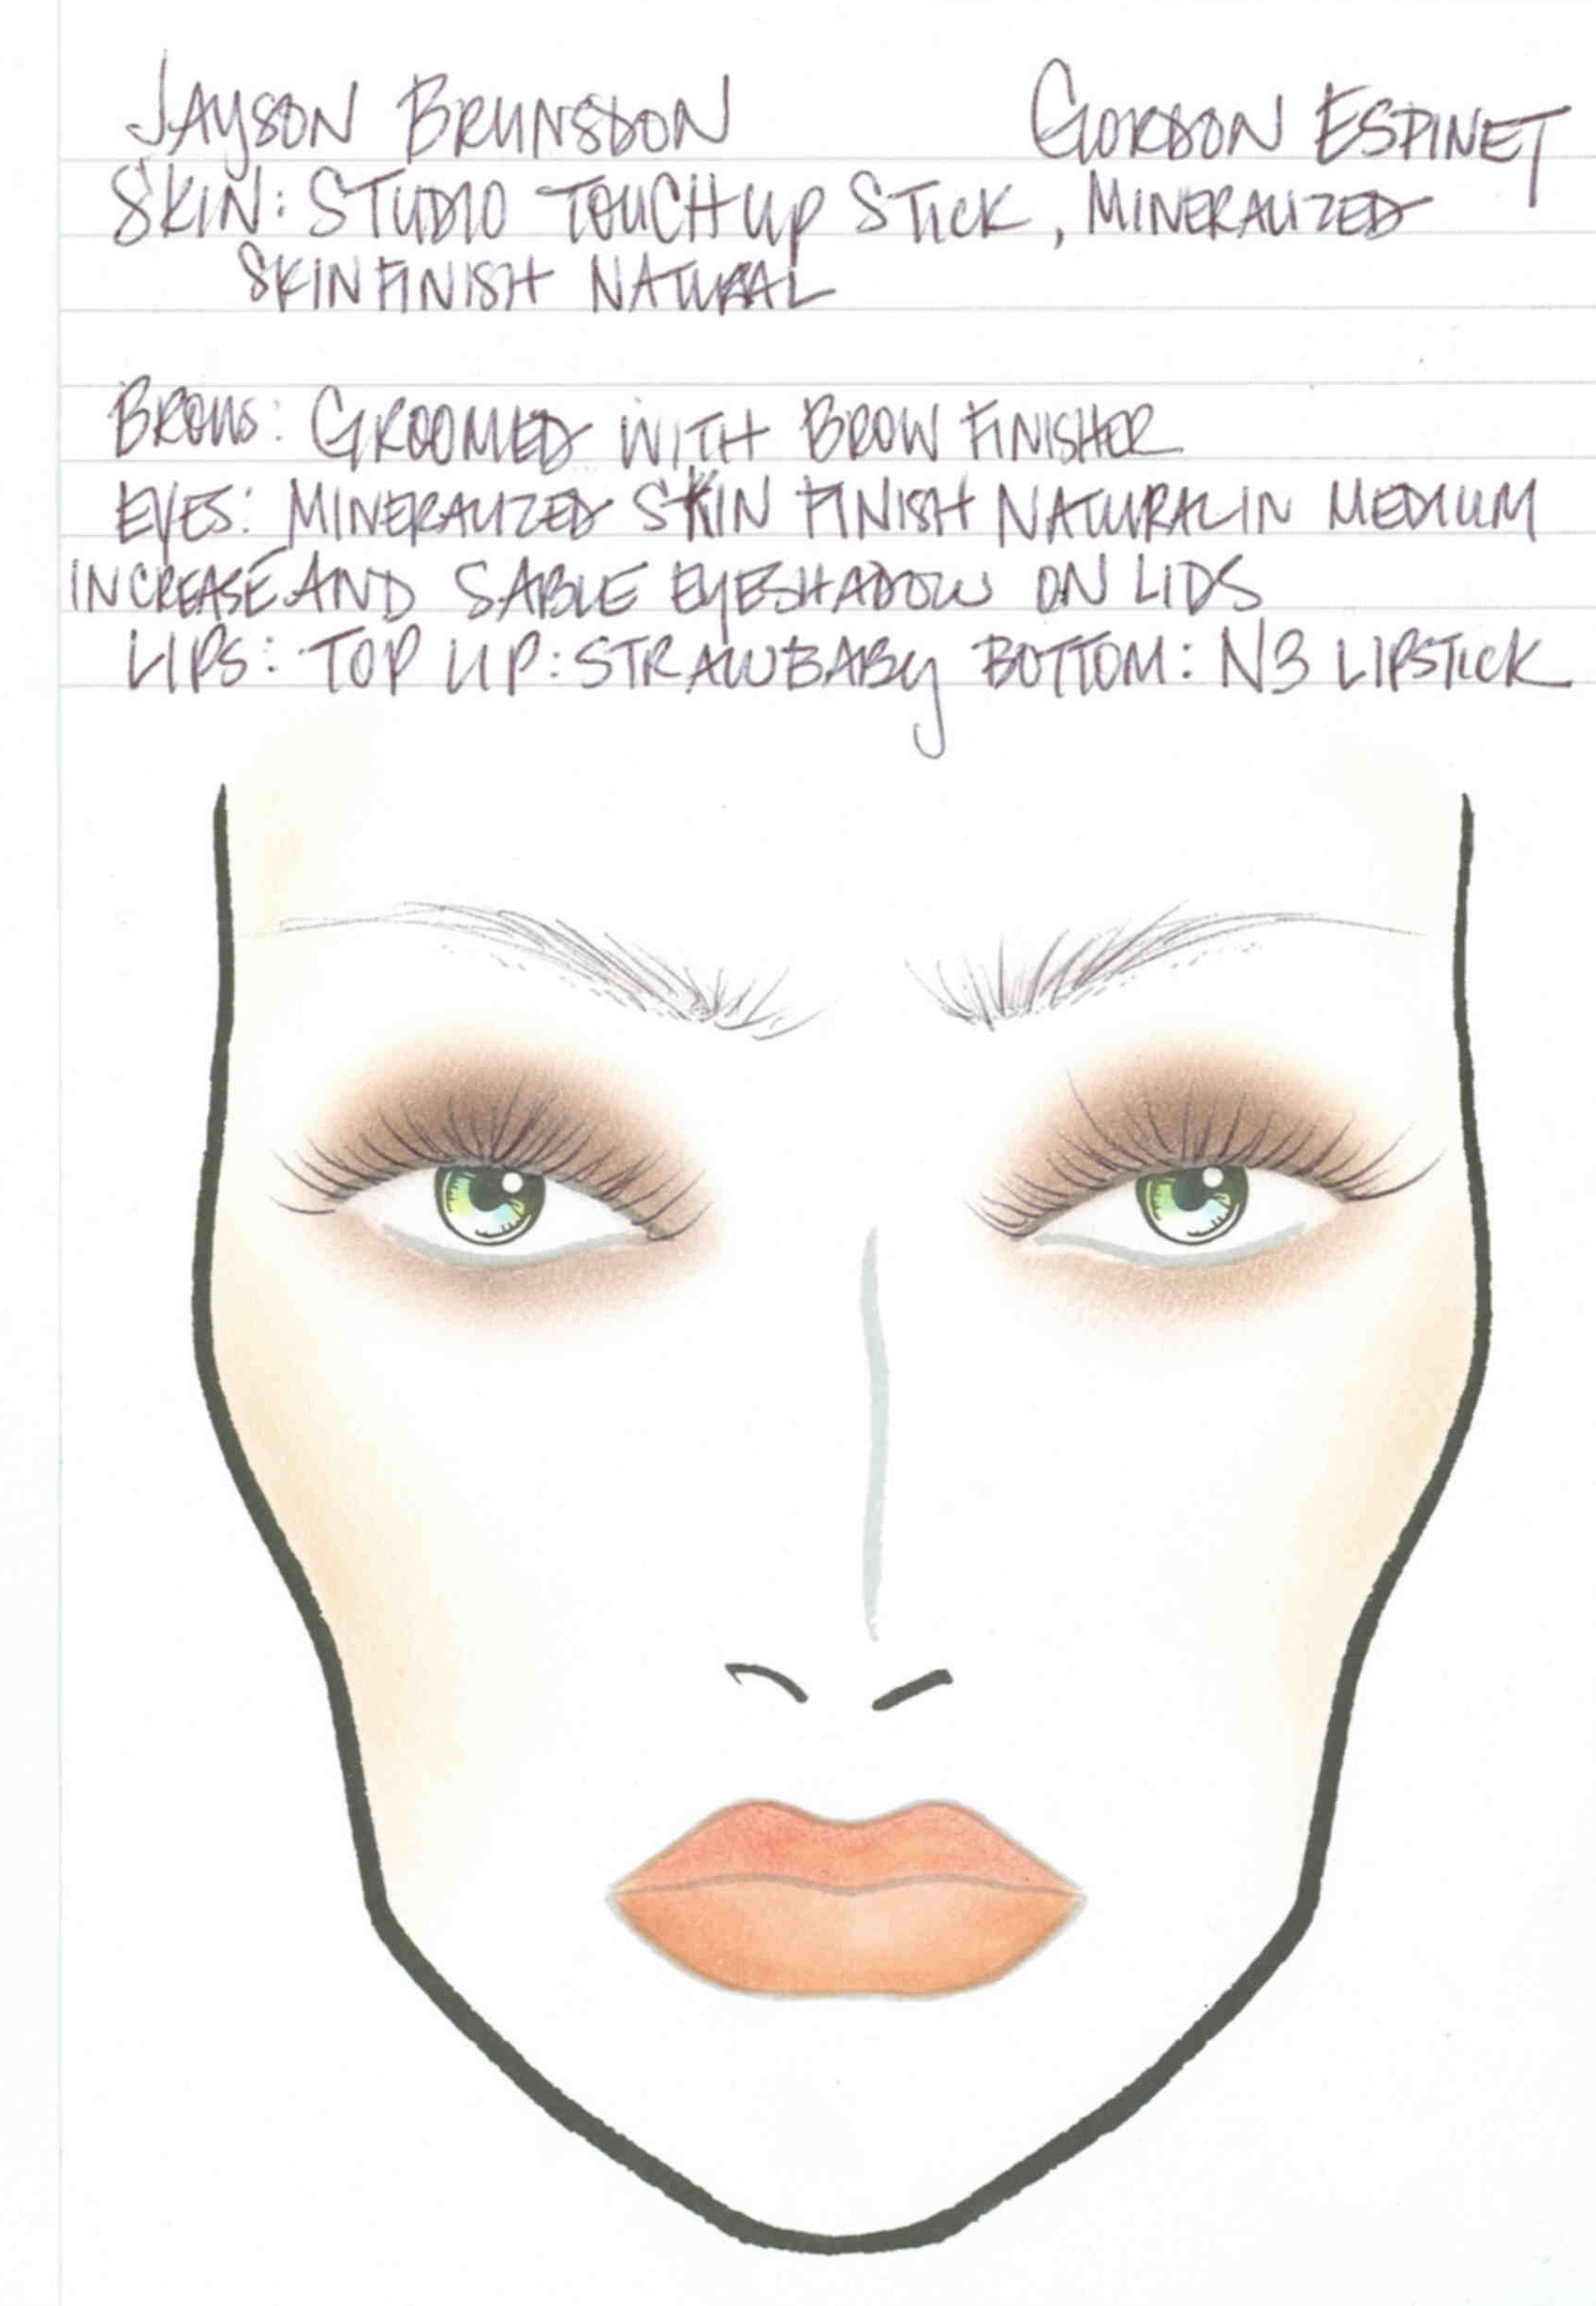 JAYSON BRUNSDON GORDON ESPINET
SKIN: STUDIO TOUCH UP STICK, MINERALIZED
SKINFINISH NATURAL
BROWS: GROOMED WITH BROW FINISHER
EYES: MINERALIZED SKIN FINISH NATURAL IN MEDIUM
IN CREASE AND SABLE EYESHADOW ON LIDS
LIPS: TOP LIP: STRAWBABY BOTTOM: N3 LIPSTICK